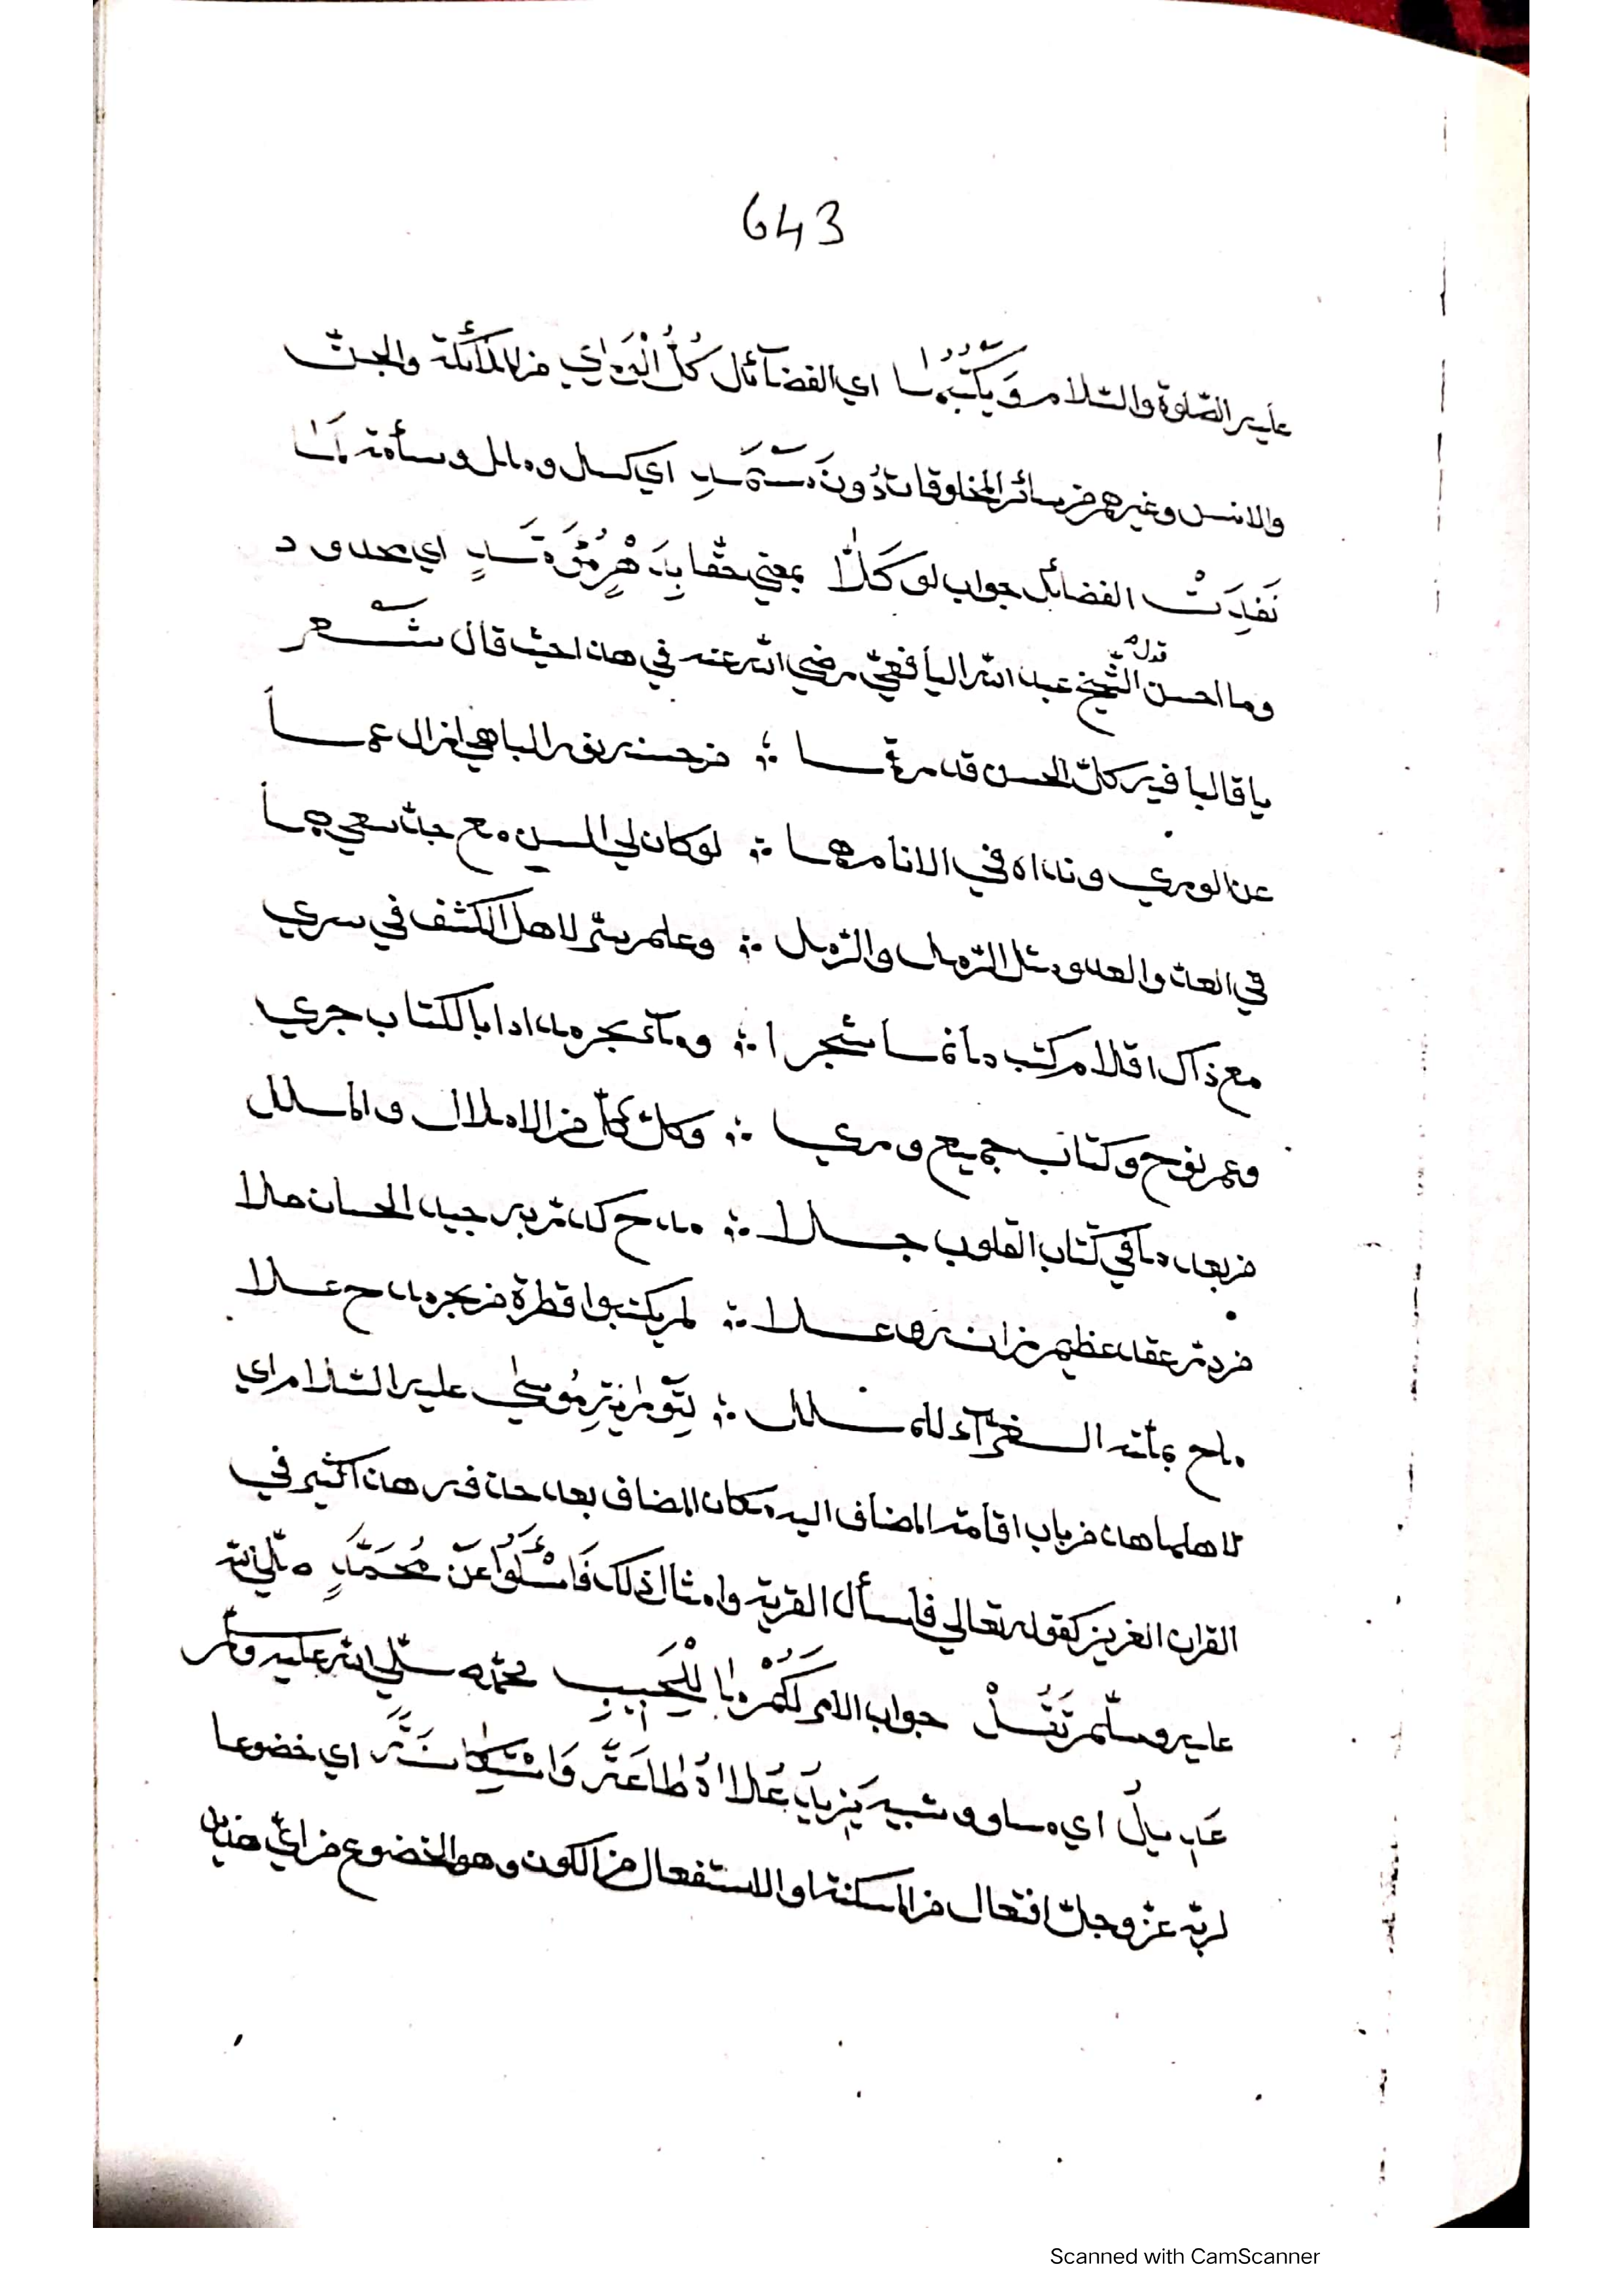 643
عليه الصلوة والسلام وَيَكْتُبُهَا اي الفضآئل كُلُّ الْوَرٰي اي من الملآئكة والجنّ
والانس وغيرهم من سائر المخلوقات دُونَ سَئَمَةٍ اي كسل وملل وسأمة لَمَا
نَفِدَتْ الفضائل جواب لو كَلَّا بمعني حقّا بِدَهْرٍ مُوَقَّتٍ اي محدود
وما احسن قوله الشّيخ عبد الله اليافعيّ رضي الله عنه في هذا حيث قال شعر
يا قالبا فيه كلّ الحسن قد من حسنه نوره الباهي ازال عما
عن الوري ونداه في الانام هما ؞ لو كان لي السن مع جدّ سعي
في العدّ والعدو مثل الرّمل والرّمل ؞ وعلم سرّ لاهل الكشف في سري
مع ذاك اقلام كتب ما شجرا ؞ ومآء بحر مدادا بالكتاب جري
وعمر نوح وكتاب جميع وري ؞ وكلّ كلّ من الاملال والملل
من بعد ما في كتاب القلوب جلا ؞ مدح كدرّ به جيد الحسان حلا
من درّ عقد عظيم زان علا ؞ لم يكتبوا قطرة من بحر مدح علا
مدح عليه السّلام اي
لاهلها هذا من باب اقامة المضاف اليه مكان المضاف بعد حذفه هذا كثير في
القران العزيز كقوله تعالي فاسأل القرية وامثال ذلك فَاسْئَلُوا عَنْ مُحَمَّدٍ صلّي الله
عليه وسلّم تَقُلْ جواب الامر لَكُمْ مَا لِلْحَبِيبِ محمّد صلّي الله عليه وسلّم
عَدِيلٌ اي مساو وشبيه يَزِيدُ عُلَاهُ طَاعَةً وَاسْتِكَانَةً اي خضوعا
لربّه عزّ وجلّ افتعال من المسكنة او الاستفعال من الكون وهو الخضوع من
Scanned with CamScanner